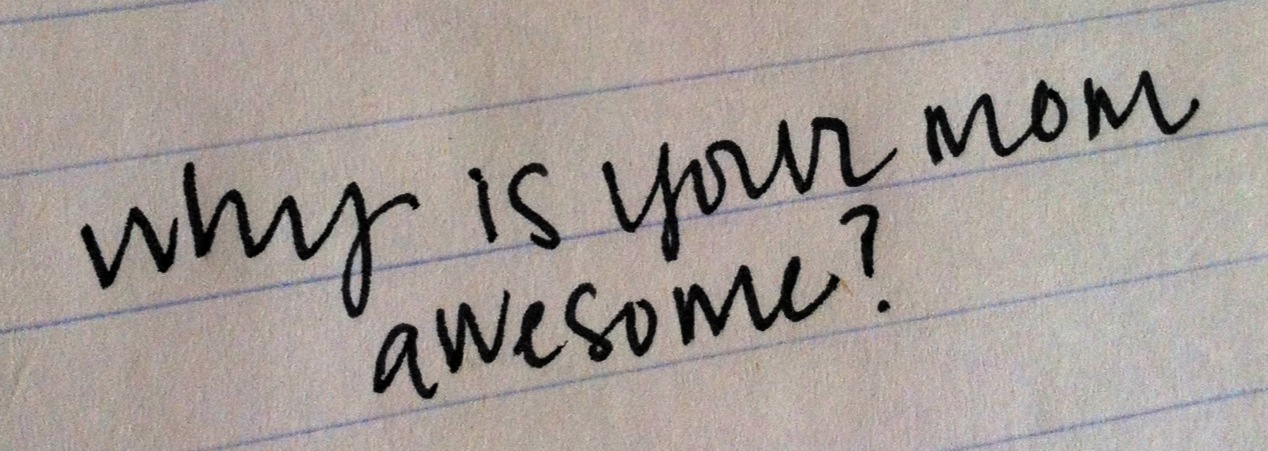 why is your mom
awesome?